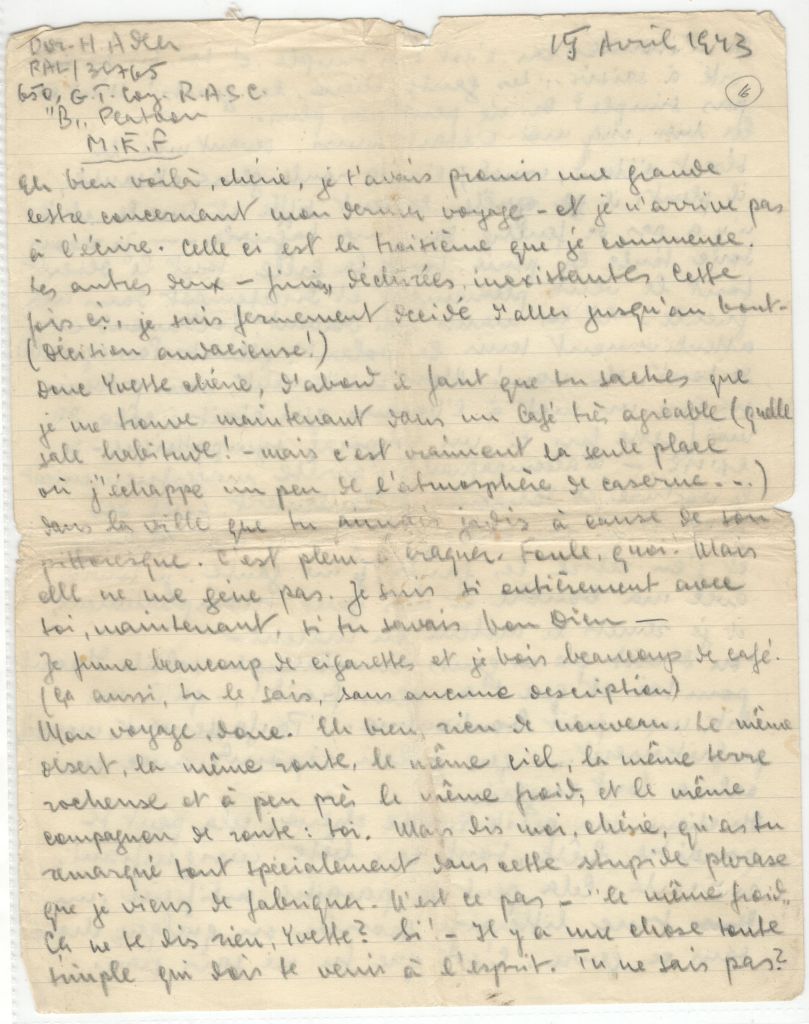 Dvr. H. Adler
15 Avril 1943
PAL/30765
16
650, G.T. Coy. R.A.S.C.
"B" Platoon
M.E.F
Eh bien voilà, chérie, je t'avais promis une grande
lettre concernant mon dernier voyage - et je n'arrive pas
à l'écrire. Celle ci est la troisième que je commence.
Les autres deux - finis, déchirées, inexistantes. Cette
fois ci, je suis fermement decidé d'aller jusqu'au bout -
(Décision audacieuse!)
Donc Yvette chérie, d'abord il faut que tu saches que
je me trouve maintenant dans un Café très agréable (quelle
sale habitude! - mais c'est vraiment la seule place
où j'échappe un peu de l'atmosphère de caserne...)
dans la ville que tu aimais jadis à cause de son
pittoresque. C'est plein à craquer. Foule, quoi. Mais
elle ne me gêne pas. Je suis si entièrement avec
toi, maintenant, si tu savais bon Dieu —
Je fume beaucoup de cigarettes et je bois beaucoup de café.
(ça aussi, tu le sais, sans aucune description)
Mon voyage, donc. Eh bien, rien de nouveau. Le même
désert, la même route, le même ciel, la même terre
rocheuse et à peu près le même froid, et le même
compagnon de route: toi. Mais dis moi, chérie, qu'as tu
remarqué tout spécialement dans cette stupide phrase
que je viens de fabriquer. N'est ce pas - "le même froid"
Ça ne te dis rien, Yvette? Si! - Il y a une chose toute
simple qui dois te venir à l'esprit. Tu ne sais pas?